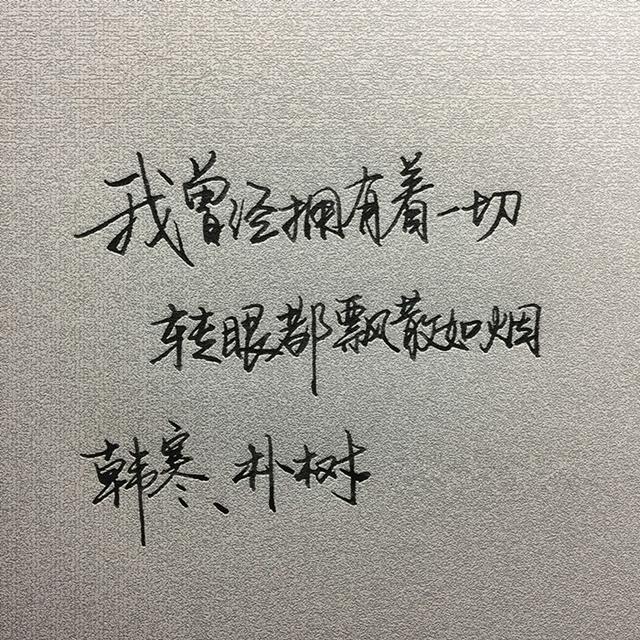 我曾经拥有着一切
转眼都飘散如烟
韩寒、朴树